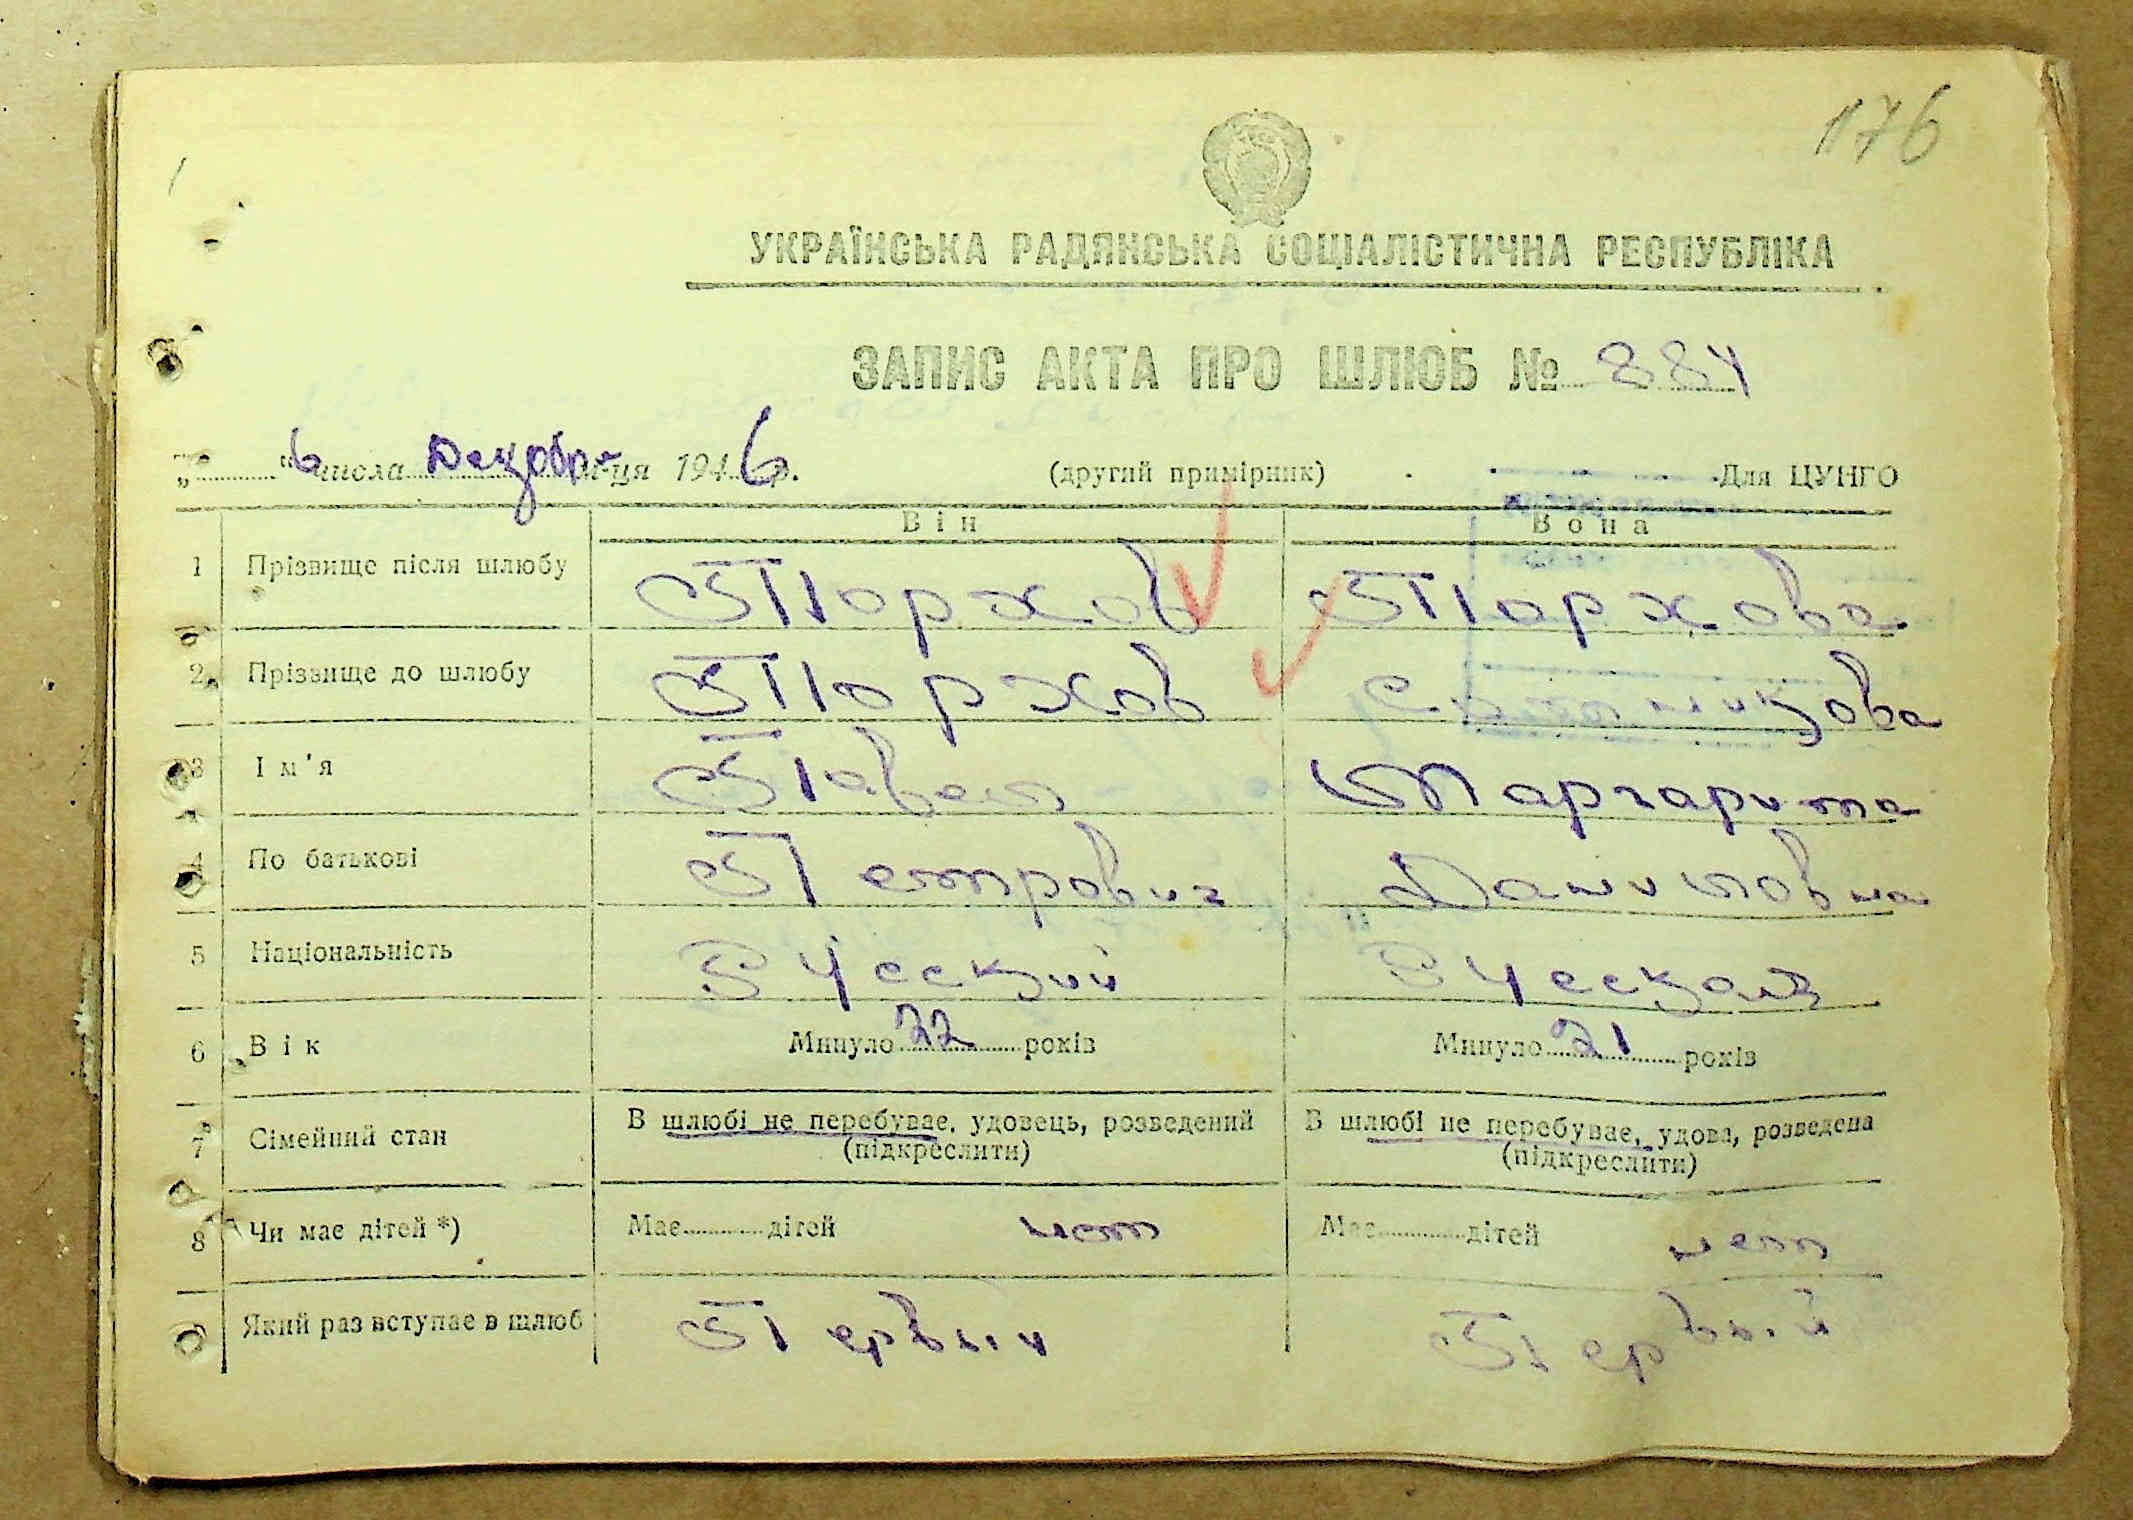 176
УКРАЇНСЬКА РАДЯНСЬКА СОЦІАЛІСТИЧНА РЕСПУБЛІКА
ЗАПИС АКТА ПРО ШЛЮБ № 884
„ “ 6 числа Декабр м-ця 1946 р. (другий примірник) Для ЦУНГО
Він Вона
1 Прізвище після шлюбу Порхов Порхова
2 Прізвище до шлюбу Порхов
3 Ім'я Павел Маргарита
4 По батькові Петрович Даниловна
5 Національність Русский Русская
6 Вік Минуло 22 років Минуло 21 років
7 Сімейний стан В шлюбі не перебуває, удовець, розведений В шлюбі не перебуває, удова, розведена
(підкреслити) (підкреслити)
8 Чи має дітей *) Має дітей нет Має дітей нет
9 Який раз вступає в шлюб Первый Первый